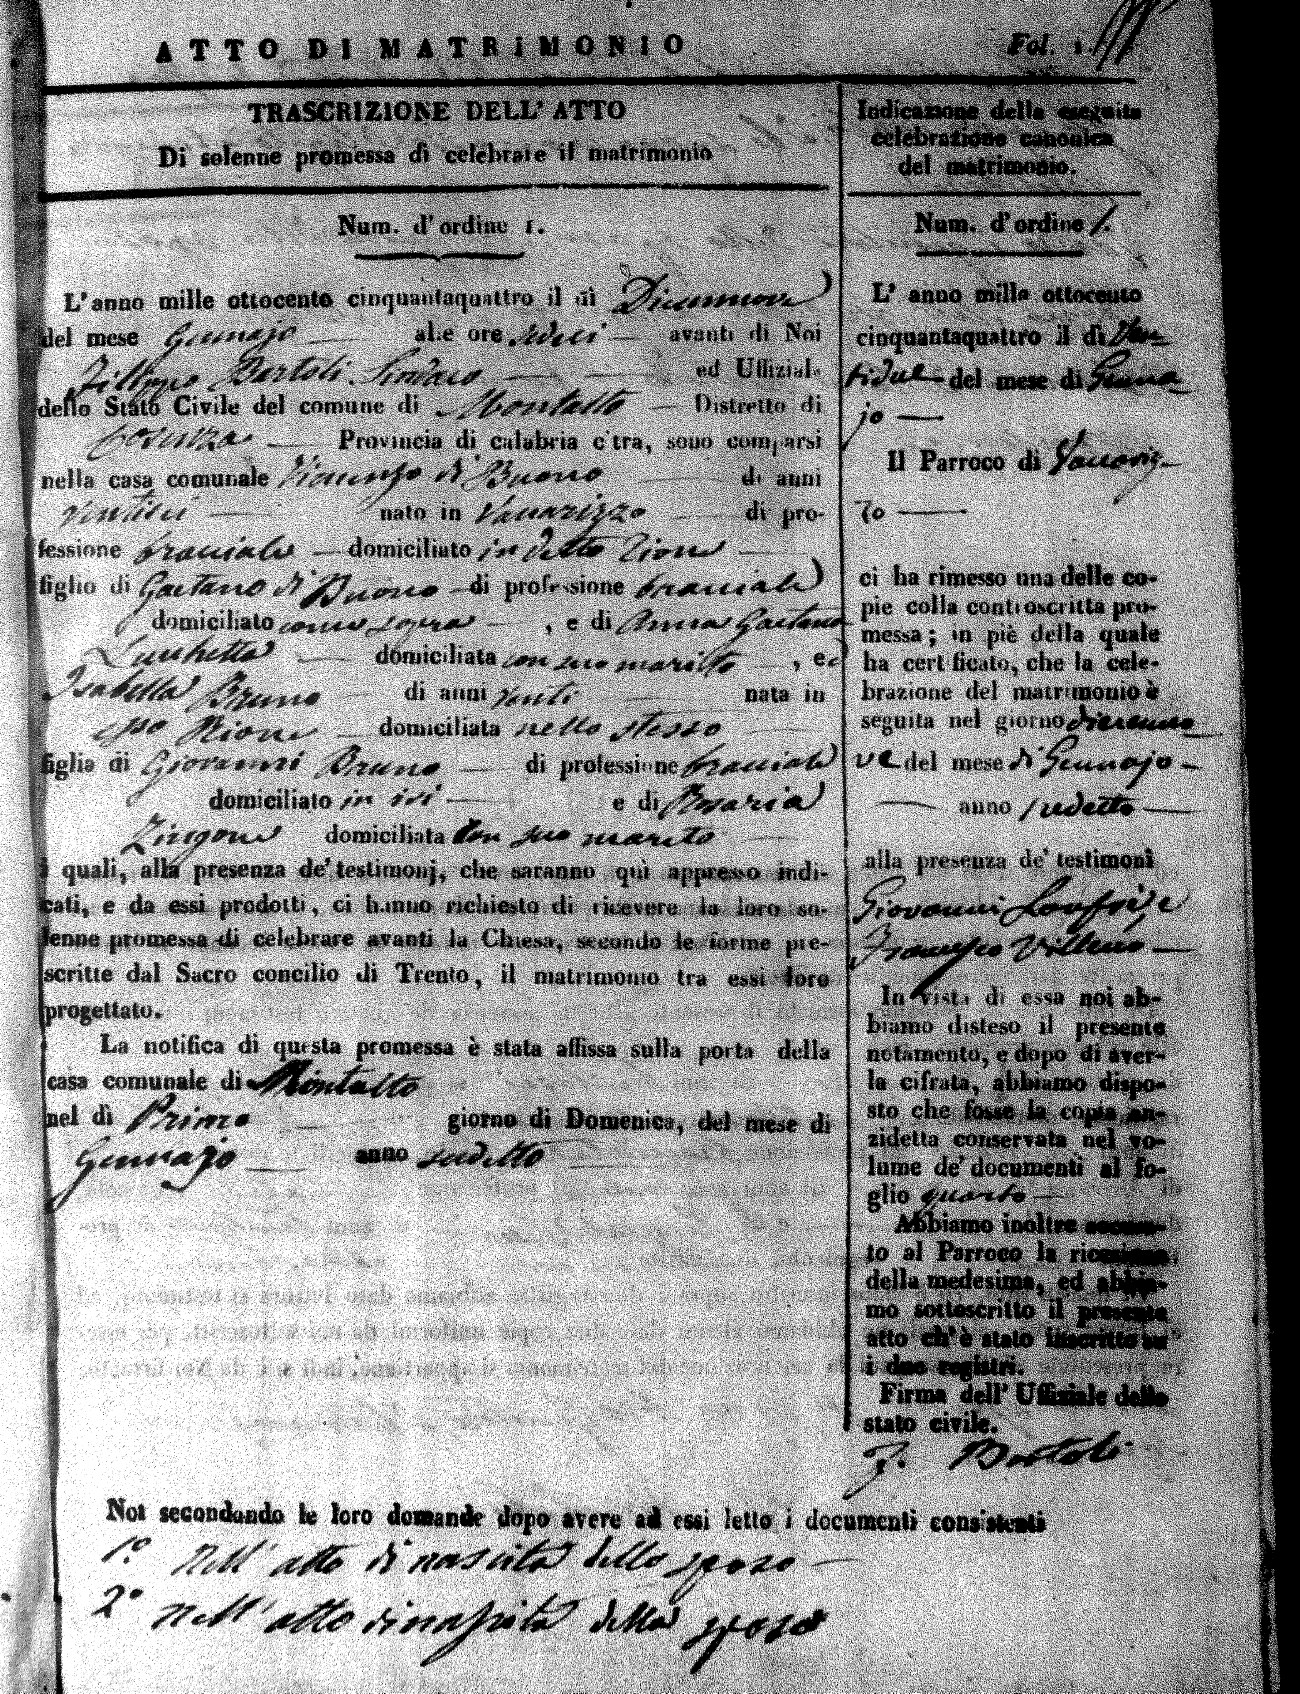 ATTO DI MATRIMONIO
Fol. 1.
TRASCRIZIONE DELL' ATTO
Di solenne promessa di celebrare il matrimonio
Num. d'ordine 1.
L'anno mille ottocento cinquantaquattro il dì Diecinnove
del mese Gennajo alle ore sedici avanti di Noi
Filippo Bartoli Sindaco ed Uffiziale
dello Stato Civile del comune di Montalto Distretto di
Cosenza Provincia di calabria citra, sono comparsi
nella casa comunale Vicenzo di Buono di anni
ventisei nato in Vaccarizzo di pro-
fessione bracciale domiciliato in detto Rione
figlio di Gaetano di Buono di professione bracciale
domiciliato come sopra , e di Anna Gaetana
Lucchetta domiciliata con suo marito , ed
Isabella Bruno di anni venti nata in
esso Rione domiciliata nello stesso
figlia di Giovanni Bruno di professione bracciale
domiciliato in ivi e di Rosaria
Zingone domiciliata con suo marito
i quali, alla presenza de' testimonj, che saranno quì appresso indi-
cati, e da essi prodotti, ci hanno richiesto di ricevere la loro so-
lenne promessa di celebrare avanti la Chiesa, secondo le forme pre-
scritte dal Sacro concilio di Trento, il matrimonio tra essi loro
progettato.
La notifica di questa promessa è stata affissa sulla porta della
casa comunale di Montalto
nel dì Primo giorno di Domenica, del mese di
Gennajo anno sudetto
Indicazione della eseguita
celebrazione canonica
del matrimonio.
Num. d'ordine 1.
L' anno mille ottocento
cinquantaquattro il dì Ven
tidue del mese di Genna
jo
Il Parroco di Vaccariz
zo
ci ha rimesso una delle co-
pie colla controscritta pro-
messa; in piè della quale
ha certificato, che la cele-
brazione del matrimonio è
seguita nel giorno diecinno
ve del mese di Gennajo
anno sudetto
alla presenza de' testimoni
Giovanni
Francesco
In vista di essa noi ab-
biamo disteso il presente
notamento, e dopo di aver-
la cifrata, abbiamo dispo-
sto che fosse la copia an-
zidetta conservata nel vo-
lume de' documenti al fo-
glio quarto
Abbiamo inoltre accusa-
to al Parroco la ricezione
della medesima, ed abbia-
mo sottoscritto il presente
atto ch'è stato inscritto su'
i due registri.
Firma dell' Uffiziale dello
stato civile.
F. Bartoli
Noi secondando le loro domande dopo avere ad essi letto i documenti consistenti
1.º Nell' atto di nascita dello sposo
2.º Nell' atto di nascita della sposa